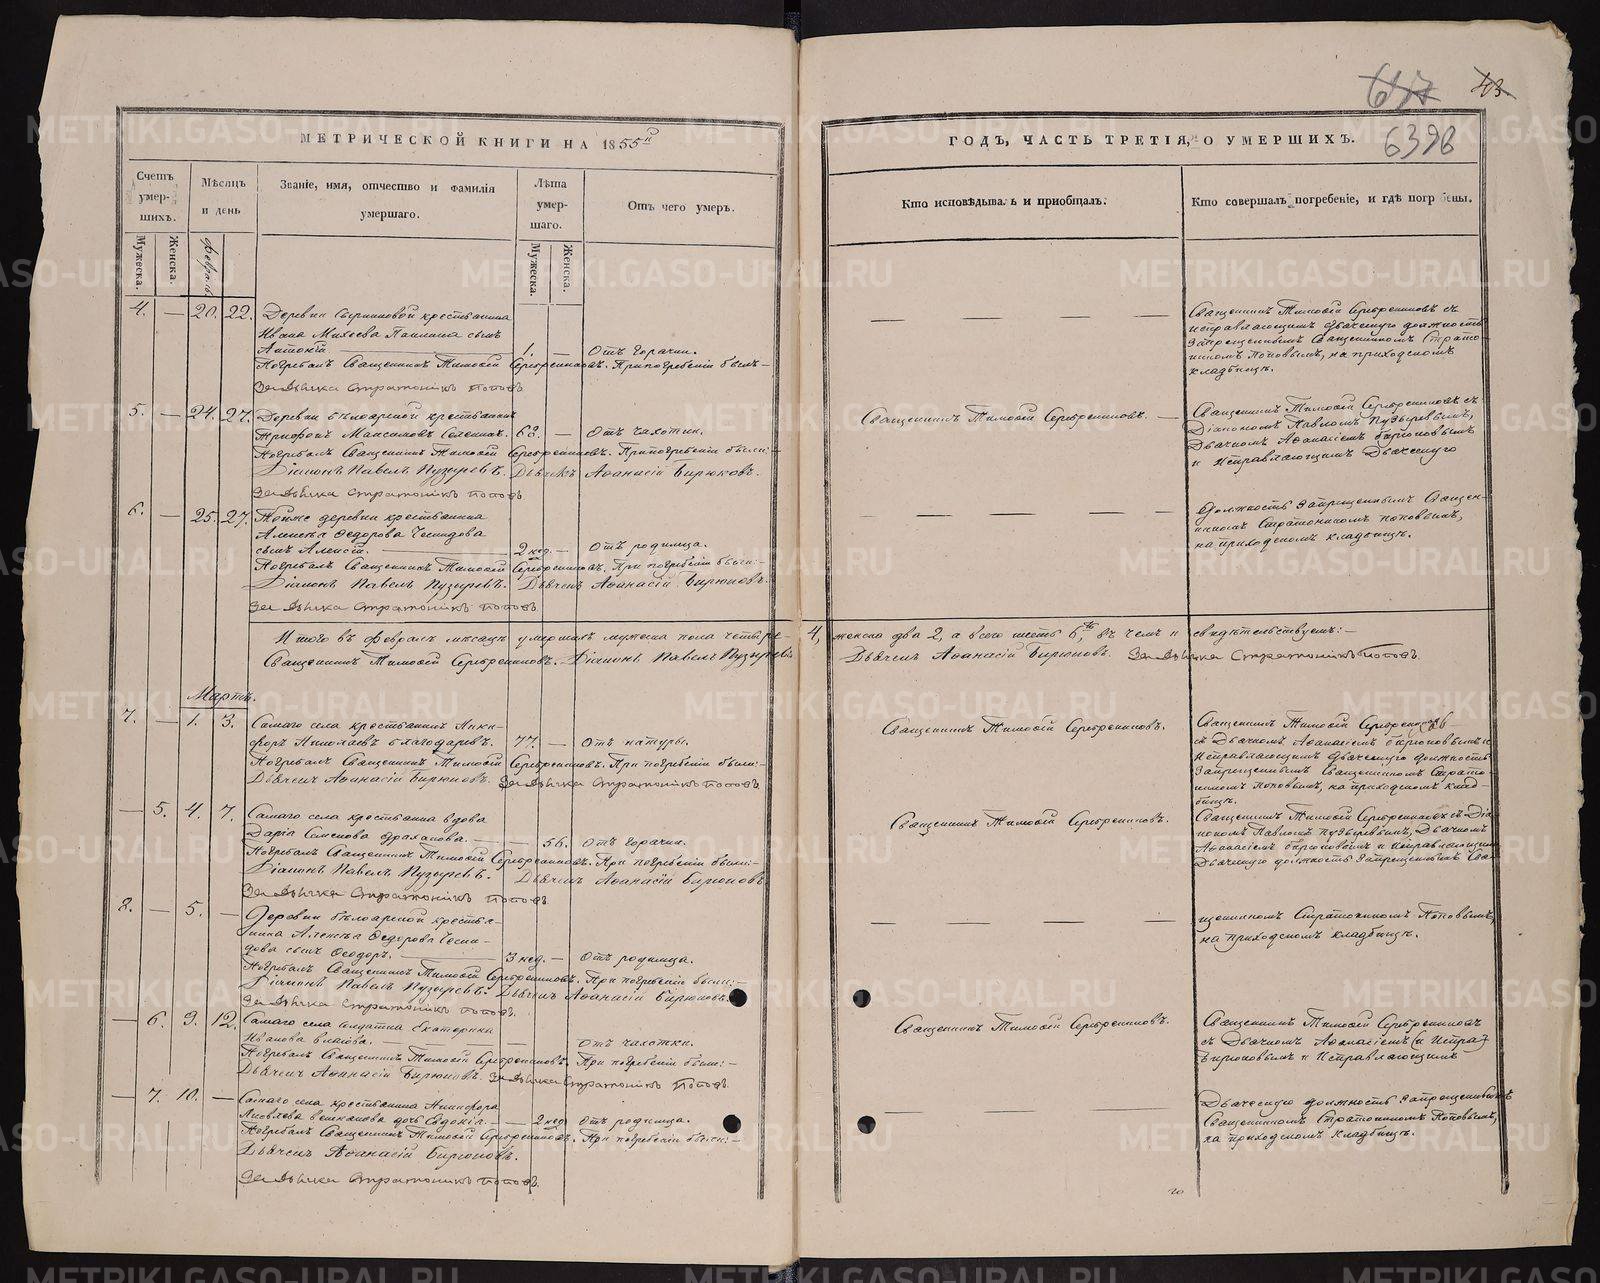 МЕТРИЧЕСКОЙ КНИГИ НА 1855й
Счетъ умершихъ.
Мѣсяцъ и день
Званіе, имя, отчество и фамилія умершаго.
Лѣта умершаго.
Отъ чего умеръ.
Мужеска.
Женска.
Февраль
Мужеска.
Женска.
4. — 20. 22. Деревни крестьянина
Ивана Михеева сынъ
Антоній — 1. — Отъ горячки.
Погребалъ Священникъ Тимоѳій Серебренниковъ. При погребеніи былъ:—
За Дьячка Стратоникъ Поповъ
5. — 24. 27. Деревни Бѣлоярской крестьянинъ
Трифонъ Максимовъ 63. — Отъ чахотки.
Погребалъ Священникъ Тимоѳій Серебренниковъ. При погребеніи были:—
Діаконъ Павелъ Пузыревъ. Дьячекъ Аѳанасій Бирюковъ.
За Дьячка Стратоникъ Поповъ
6. — 25. 27. Тойже деревни крестьянина
Алексѣя Ѳедорова
сынъ Алексій. — 2 нед. — Отъ родимца.
Погребалъ Священникъ Тимоѳій Серебренниковъ. При погребеніи были:—
Діаконъ Павелъ Пузыревъ. Дьячекъ Аѳанасій Бирюковъ.
За Дьячка Стратоникъ Поповъ
Итого въ Февралѣ мѣсяцѣ умершихъ мужеска пола четыре
Священникъ Тимоѳій Серебренниковъ. Діаконъ Павелъ Пузыревъ
Мартъ.
7. — 1. 3. Самаго села крестьянинъ Ники-
форъ Николаевъ Благодаревъ. 77. — Отъ натуры.
Погребалъ Священникъ Тимоѳій Серебренниковъ. При погребеніи были:—
Дьячекъ Аѳанасій Бирюковъ. За Дьячка Стратоникъ Поповъ
— 5. 4. 7. Самаго села крестьянка вдова
Дарія Семенова — 56. Отъ горячки.
Погребалъ Священникъ Тимоѳій Серебренниковъ. При погребеніи были:—
Діаконъ Павелъ Пузыревъ. Дьячекъ Аѳанасій Бирюковъ
За Дьячка Стратоникъ Поповъ
8. — 5. — Деревни Бѣлоярской крестья-
нина Алексѣя Ѳедорова
сынъ Ѳеодоръ. — 3 нед. — Отъ родимца.
Погребалъ Священникъ Тимоѳій Серебренниковъ. При погребеніи были:—
Діаконъ Павелъ Пузыревъ. Дьячекъ Аѳанасій Бирюковъ.
За Дьячка Стратоникъ Поповъ.
— 6. 9. 12. Самаго села солдатка Екатерина
Иванова — Отъ чахотки.
Погребалъ Священникъ Тимоѳій Серебренниковъ. При погребеніи были:—
Дьячекъ Аѳанасій Бирюковъ. За Дьячка Стратоникъ Поповъ.
— 7. 10. — Самаго села крестьянина Никифора
Яковлева дочь Евдокія. — 2 нед. Отъ родимца.
Погребалъ Священникъ Тимоѳій Серебренниковъ. При погребеніи были:—
Дьячекъ Аѳанасій Бирюковъ.
За Дьячка Стратоникъ Поповъ.
43
6398
ГОДЪ, ЧАСТЬ ТРЕТІЯ, О УМЕРШИХЪ.
Кто исповѣдывалъ и пріобщалъ.
Кто совершалъ погребеніе, и гдѣ погребены.
Священникъ Тимоѳій Серебренниковъ съ
исправляющимъ дьяческую должность
Запрещеннымъ Священникомъ Страто-
никомъ Поповымъ, на приходскомъ
кладбищѣ.
Священникъ Тимоѳій Серебренниковъ. —
Священникъ Тимоѳій Серебренниковъ съ
Діакономъ Павломъ Пузыревымъ,
Дьячкомъ Аѳанасіемъ Бирюковымъ
и Исправляющимъ Дьяческую
должность Запрещеннымъ Священ-
никомъ Стратоникомъ Поповымъ,
на приходскомъ кладбищѣ.
4, женска два 2, а всего шесть 6ть, въ чемъ и свидѣтельствуемъ:—
Дьячекъ Аѳанасій Бирюковъ. За Дьячка Стратоникъ Поповъ.
Священникъ Тимоѳій Серебренниковъ.
Священникъ Тимоѳій Серебренниковъ
съ Дьячкомъ Аѳанасіемъ Бирюковымъ и
Исправляющимъ дьяческую должность
Запрещеннымъ Священникомъ Страто-
никомъ Поповымъ, на приходскомъ клад-
бищѣ.
Священникъ Тимоѳій Серебренниковъ.
Священникъ Тимоѳій Серебренниковъ съ Діа-
кономъ Павломъ Пузыревымъ, Дьячкомъ
Аѳанасіемъ Бирюковымъ и Исправляющимъ
Дьяческую должность Запрещеннымъ Свя-
щенникомъ Стратоникомъ Поповымъ,
на приходскомъ кладбищѣ.
Священникъ Тимоѳій Серебренниковъ.
Священникъ Тимоѳій Серебренниковъ
съ Дьячкомъ Аѳанасіемъ (и Исправ)
Бирюковымъ и Исправляющимъ
Дьяческую должность Запрещеннымъ
Священникомъ Стратоникомъ Поповымъ,
на приходскомъ кладбищѣ.
METRIKI.GASO-URAL.RU